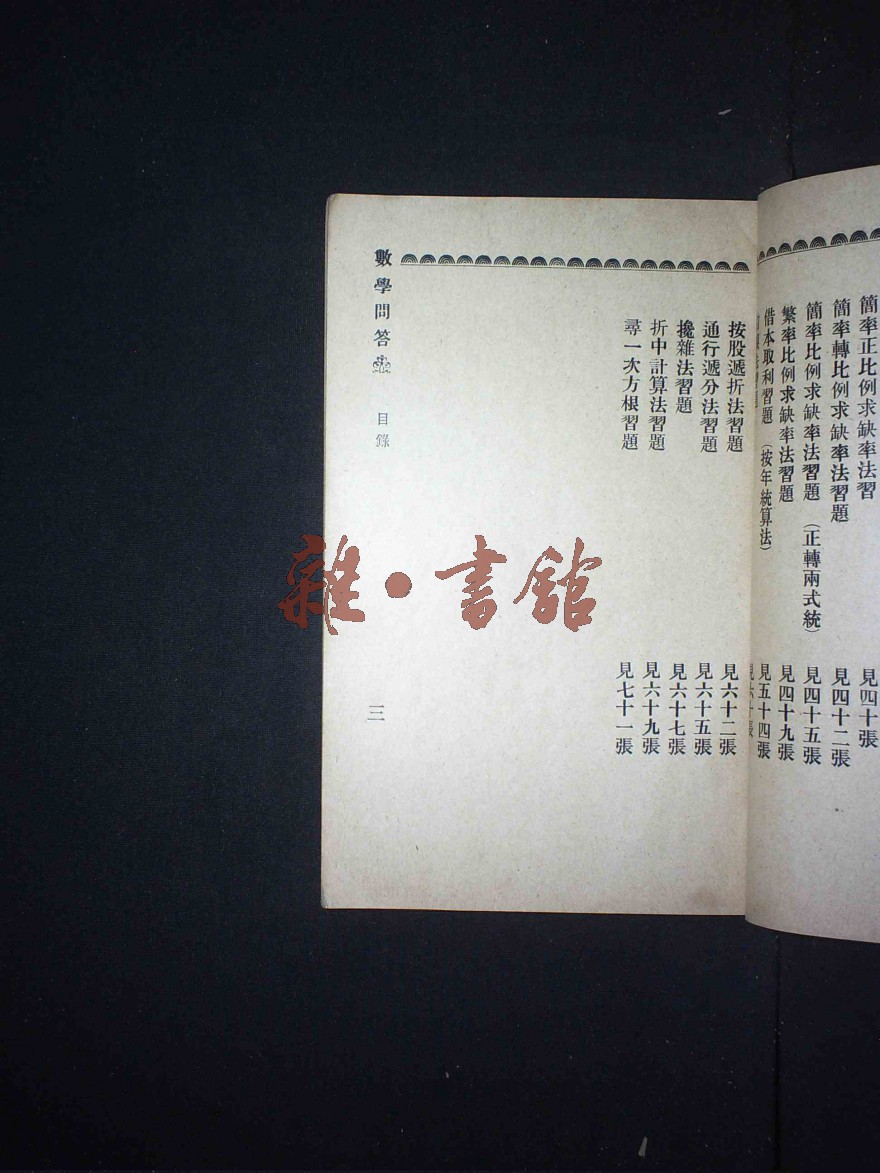 簡率正比例求缺率法習 見四十張
簡率轉比例求缺率法習題 見四十二張
簡率比例求缺率法習題 (正轉兩式統) 見四十五張
繁率比例求缺率法習題 見四十九張
借本取利習題 (按年統算法) 見五十四張
按股遞折法習題 見六十二張
通行遞分法習題 見六十五張
攙雜法習題 見六十七張
折中計算法習題 見六十九張
尋一次方根習題 見七十一張
數學問答 目錄 三
雜·書館